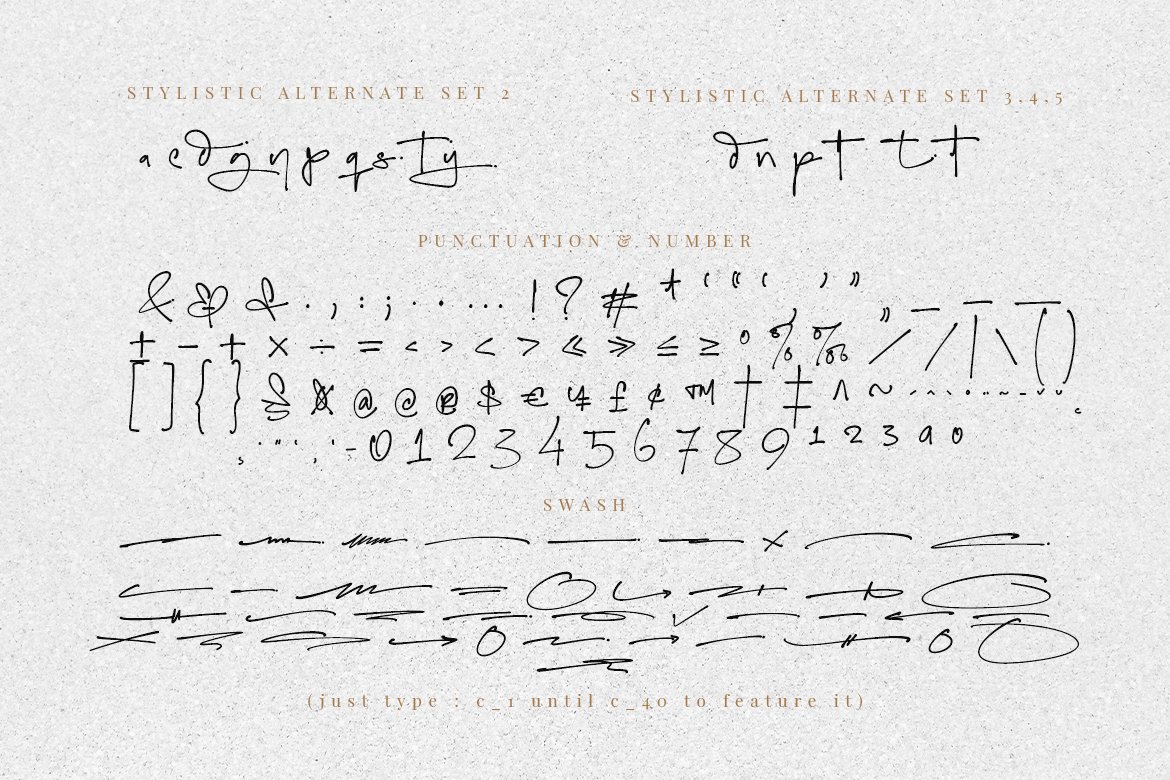 STYLISTIC ALTERNATE SET 2
STYLISTIC ALTERNATE SET 3,4,5
a e d g n p q s. t y
d n p t t. t
PUNCTUATION & NUMBER
& & & . , : ; · • ... ! ? # * ‘ “ ‘ ’ ”
+ − + × ÷ = < > < > « » ≤ ≥ ° % ‰ / / | \ ( )
[ ] { } § ¤ @ @ @ $ € ¥ £ ¢ ™ † ‡ ^ ~
0 1 2 3 4 5 6 7 8 9 1 2 3 a o
SWASH
(just type : c_1 until c_40 to feature it)